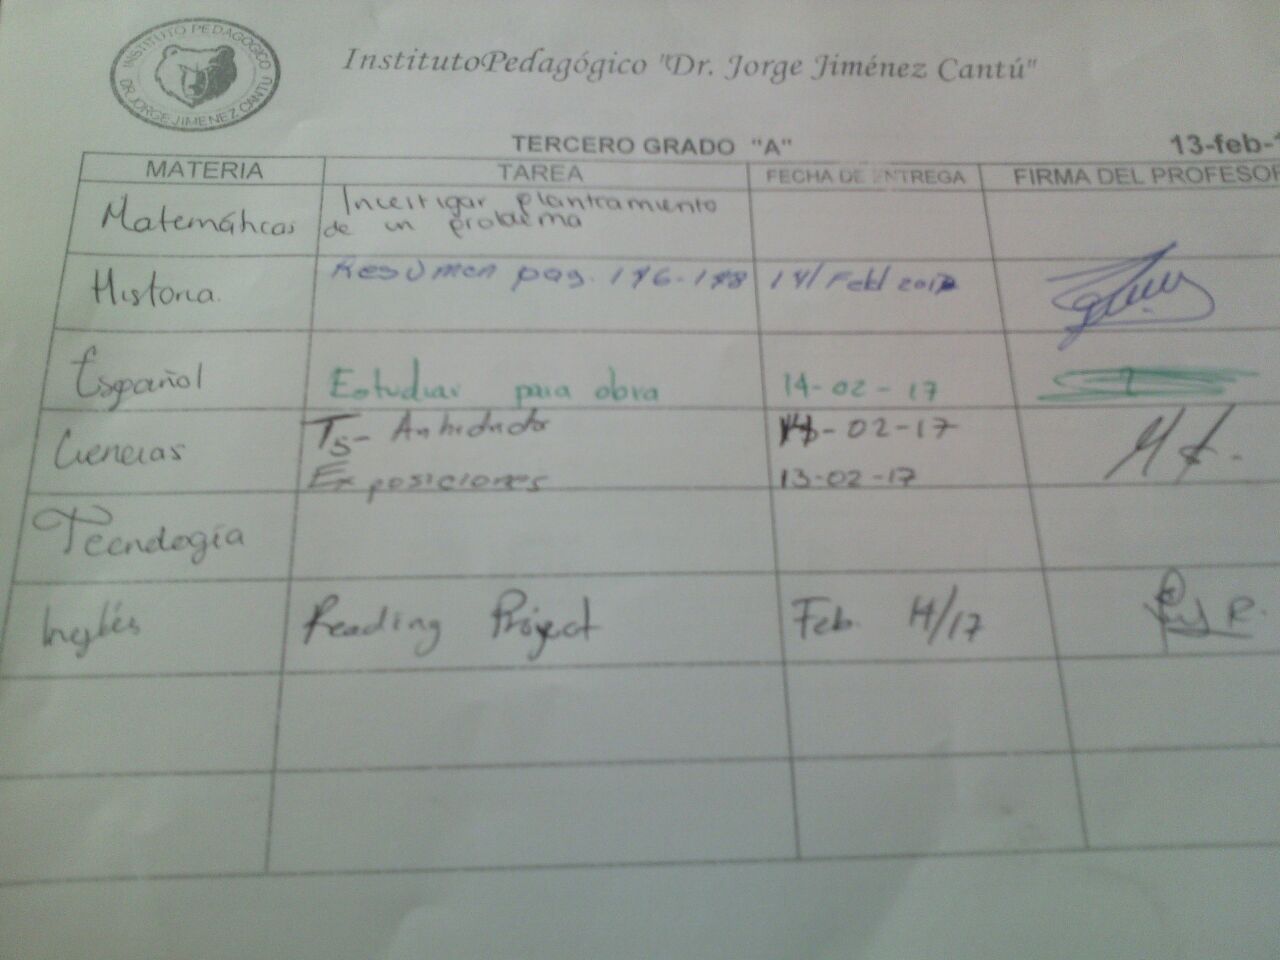 INSTITUTO PEDAGOGICO
DR. JORGE JIMENEZ CANTU
InstitutoPedagógico "Dr. Jorge Jiménez Cantú"
TERCERO GRADO "A" 13-feb-
MATERIA TAREA FECHA DE ENTREGA FIRMA DEL PROFESOR
Matemáticas Investigar planteamiento
de un problema
Historia Resumen pag. 196-198 14/Feb/2017
Español Estudiar para obra 14-02-17
Ciencias Ts- Antiducto 14-02-17
Exposiciones 13-02-17
Tecnología
Inglés Reading Project Feb. 14/17